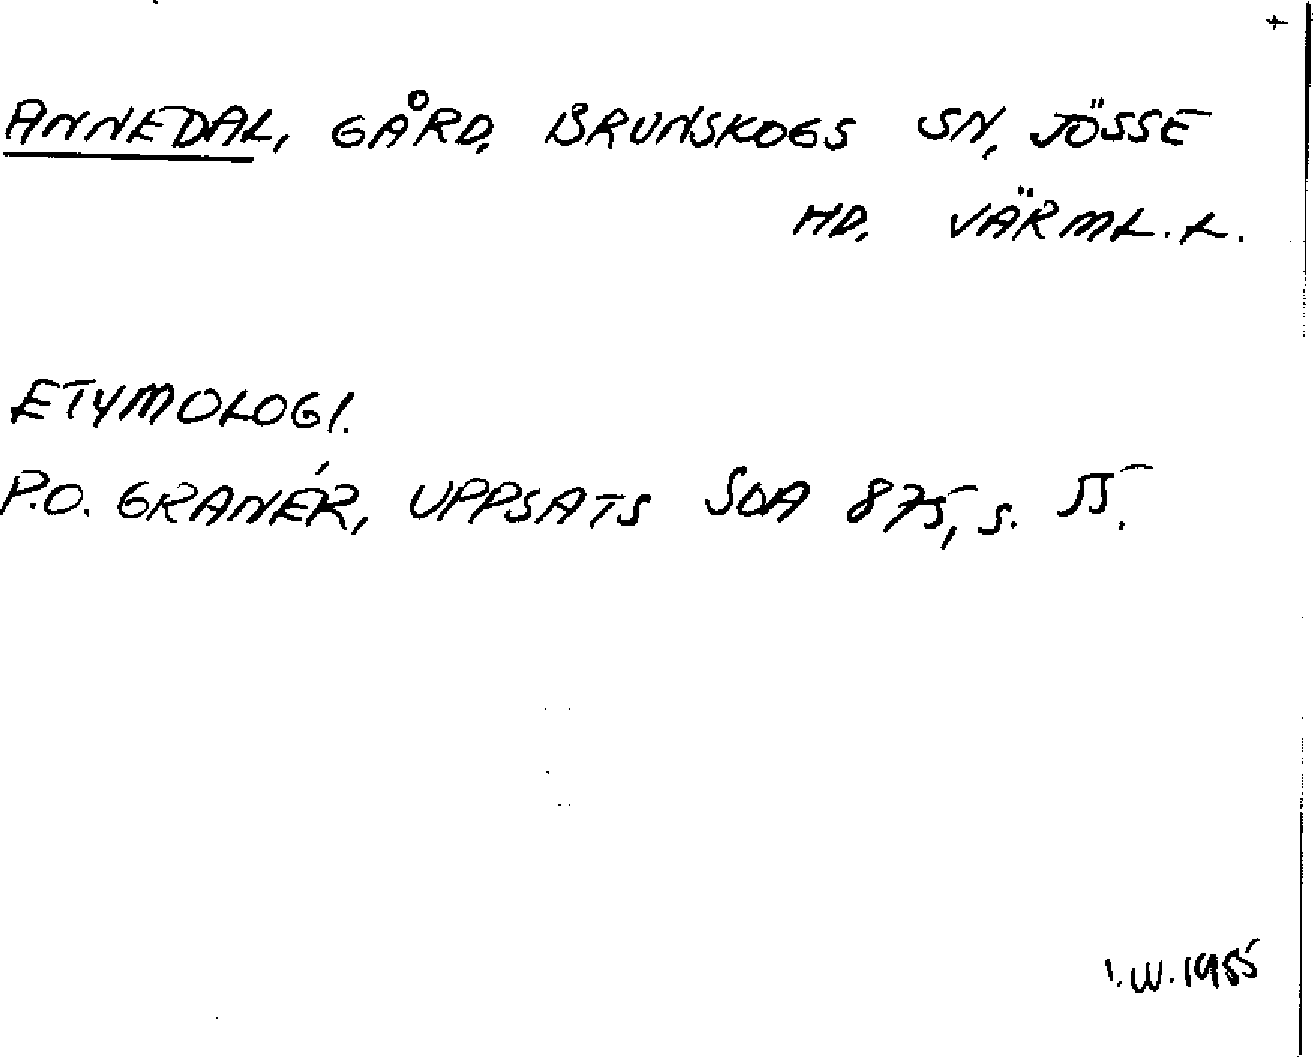 +
ANNEDAL, GÅRD, BRUNSKOGS SN, JÖSSE
HD, VÄRML. L.
ETYMOLOGI.
P.O. GRANÉR, UPPSATS SOA 875, s. 55.
I.W. 1985